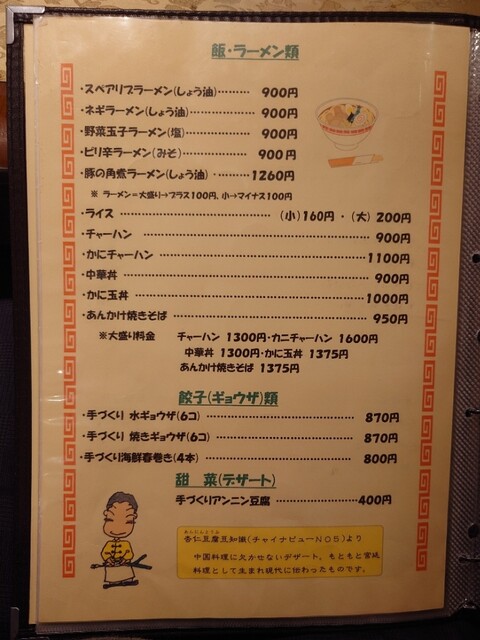 飯・ラーメン類
・スペアリブラーメン(しょう油)……… 900円
・ネギラーメン(しょう油)……………… 900円
・野菜玉子ラーメン(塩)……………… 900円
・ピリ辛ラーメン(みそ)……………… 900円
・豚の角煮ラーメン(しょう油)・……… 1260円
※ ラーメン=大盛り→プラス100円, 小→マイナス100円
・ライス ……………………………… (小)160円 ・ (大) 200円
・チャーハン …………………………………………… 900円
・かにチャーハン ……………………………………… 1100円
・中華丼 ………………………………………………… 900円
・かに玉丼 ……………………………………………… 1000円
・あんかけ焼きそば …………………………………… 950円
※大盛り料金 チャーハン 1300円・カニチャーハン 1600円
中華丼 1300円・かに玉丼 1375円
あんかけ焼きそば 1375円
餃子(ギョウザ)類
・手づくり 水ギョウザ(6コ)………………………… 870円
・手づくり 焼きギョウザ(6コ)……………………… 870円
・手づくり海鮮春巻き(4本)………………………… 800円
甜 菜(デザート)
手づくりアンニン豆腐 ………………400円
あんにんとうふ
杏仁豆腐豆知識(チャイナビューNO5)より
中国料理に欠かせないデザート、もともと宮廷
料理として生まれ現代に伝わったものです。